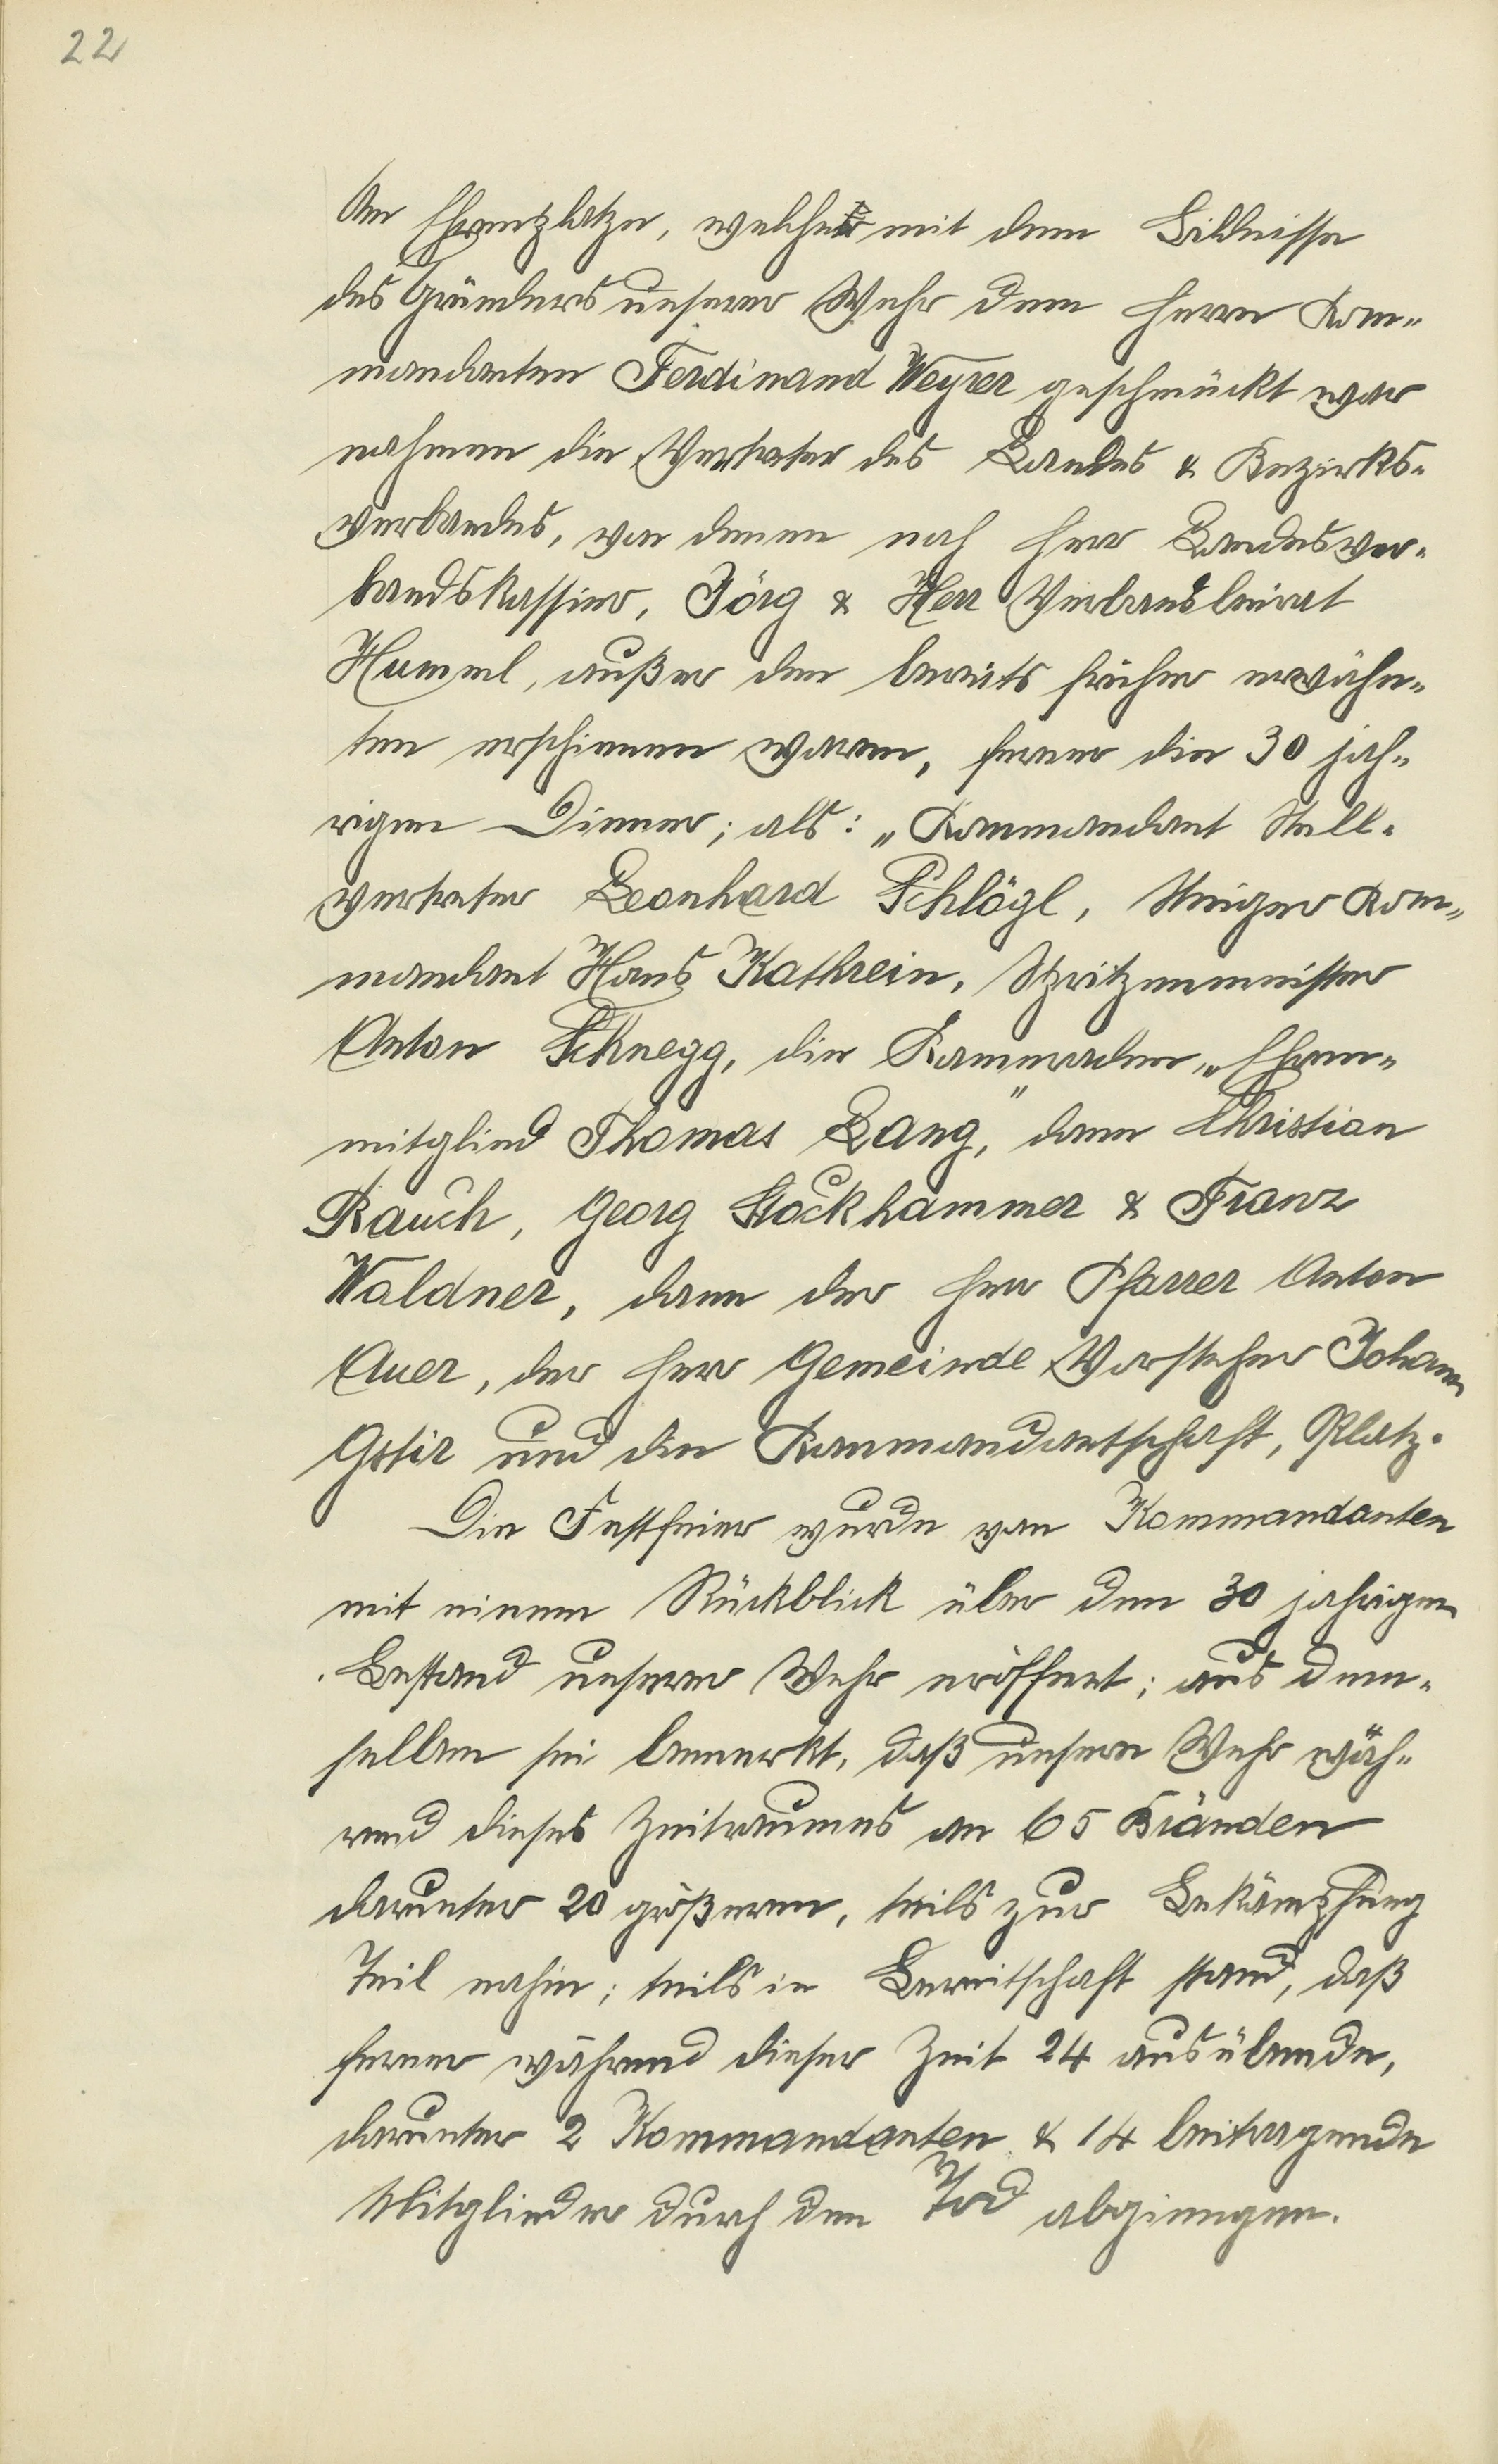 22
Am Ehrenplatze, welcher mit dem Bildnisse
des Gründers unserer Wehr dem Herrn Kom„
mandanten Ferdinand Weyrer geschmückt war
nahmen die Vertreter des Landes & Bezirks-
verbandes, von denen noch Herr Landesver-
bandskassier, Jörg & Herr Verbandsbeirat
Hummel, außer den bereits früher erwähn-
ten erschienen waren, ferner die 30 jäh-
rigen Diener; als: „Kommandant Stell-
vertreter Leonhard Schlögl, Steiger Kom„
mandant Hans Kathrein, Spritzenmeister
Anton Schnegg, die Kammeraden „Ehren-
mitglied Thomas Lang," dann Christian
Rauch, Georg Stockhammer & Franz
Waldner, dann der Herr Pfarrer Anton
Auer, der Herr Gemeinde Vorsteher Johann
Gstir und die Kommandantschaft, Platz.
Die Festfeier wurde von Kommandanten
mit einem Rückblick über den 30 jahrigen
Bestand unserer Wehr eröffnet; aus dem-
selben sei bemerkt, daß unsere Wehr wäh-
rend dieses Zeitraumes an 65 Bränden
darunter 20 größeren, teils zur Bekämpfung
Teil nahm; teils in Bereitschaft stand, daß
ferner während dieser Zeit 24 ausübende,
darunter 2 Kommandanten & 14 beitragende
Mitglieder durch den Tod abgiengen.